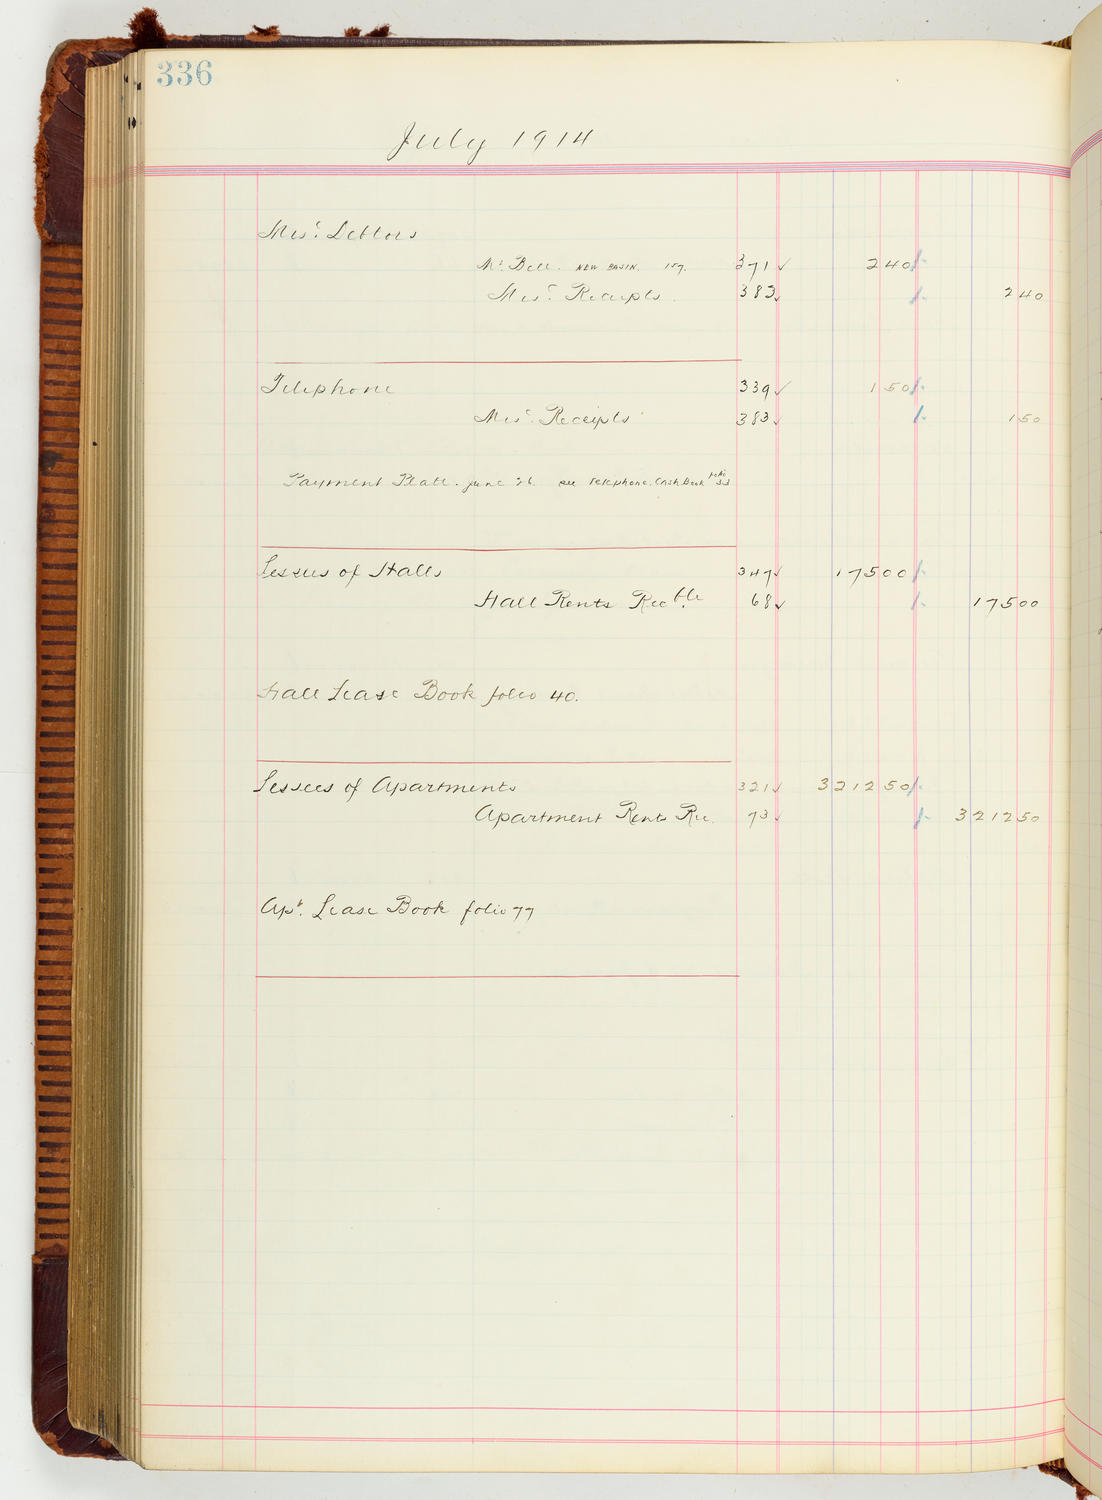 336
July 1914
Misc. Debtors
Mr. Bell. NEW BASIN. 157. 371 ✓ 240
Misc. Receipts. 383 ✓ 240
Telephone 339 ✓ 150
Misc. Receipts 383 ✓ 150
Payment Platt. June 26. see Telephone. Cash Book folio
Lessees of Halls 347 ✓ 17500
Hall Rents Recble. 68 ✓ 17500
Hall Lease Book folio 40.
Lessees of Apartments 321 ✓ 321250
Apartment Rents Rec. 73 ✓ 321250
Apt. Lease Book folio 77